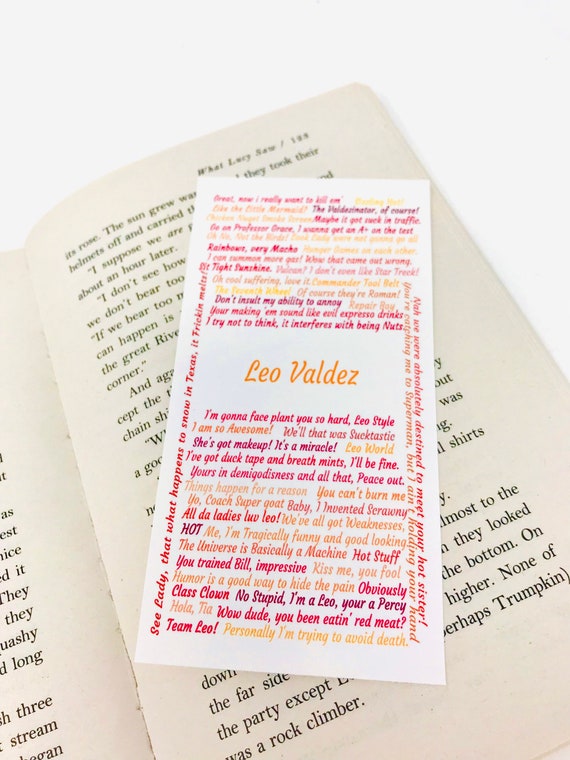 What Lucy Saw / 185
its rose. The sun grew
they took their
helmets off and carried
about an hour later.
"I suppose we are
"I don't see how
we don't hear too
"If we hear too
can happen is
the great River
corner."
And
cept the
chain
Great, now i really want to kill em'
Like the Little Mermaid! The Valdezinator, of course!
Chicken Nuget Smoke Screen Maybe it got suck in traffic.
Go on Professor Grace, I wanna get an A+ on the test
Oh No, Not the Birds! Look Lady were not gonna go all
Rainbows, very Macho Hunger Games on each other.
I can summon more gas! Wow that came out wrong,
Sit Tight Sunshine. Vulcan? I don't even like Star Treck!
Oh cool suffering, love it. Commander Tool Belt
The Seventh Wheel Of course they're Roman!
Don't insult my ability to annoy Repair Boy
Your making 'em sound like evil espresso drinks
I try not to think, it interferes with being Nuts.
Leo Valdez
I'm gonna face plant you so hard, Leo Style
I am so Awesome! We'll that was Sucktastic
She's got makeup! It's a miracle! Leo World
I've got duck tape and breath mints, I'll be fine.
Yours in demigodisness and all that, Peace out.
Things happen for a reason You can't burn me
Yo, Coach Super goat Baby, I Invented Scrawny
All da ladies luv leo! We've all got Weaknesses,
HOT Me, I'm Tragically funny and good looking
The Universe is Basically a Machine Hot Stuff
You trained Bill, impressive Kiss me, you fool
Humor is a good way to hide the pain Obviously
Class Clown No Stupid, I'm a Leo, your a Percy
Hola, Tia Wow dude, you been eatin' red meat?
Team Leo! Personally I'm trying to avoid death.
See Lady, that what happens to snow in Texas, it Trickin melts!
Nah we were absolutely destined to meet your hot sister!
You're catching me to Superman, but I ain't holding your hand
shirts
almost to the
they looked
the bottom. On
higher. None of
perhaps Trumpkin)
quashy
d long
sh three
t stream
began
down
the far side
the party except
was a rock climber.